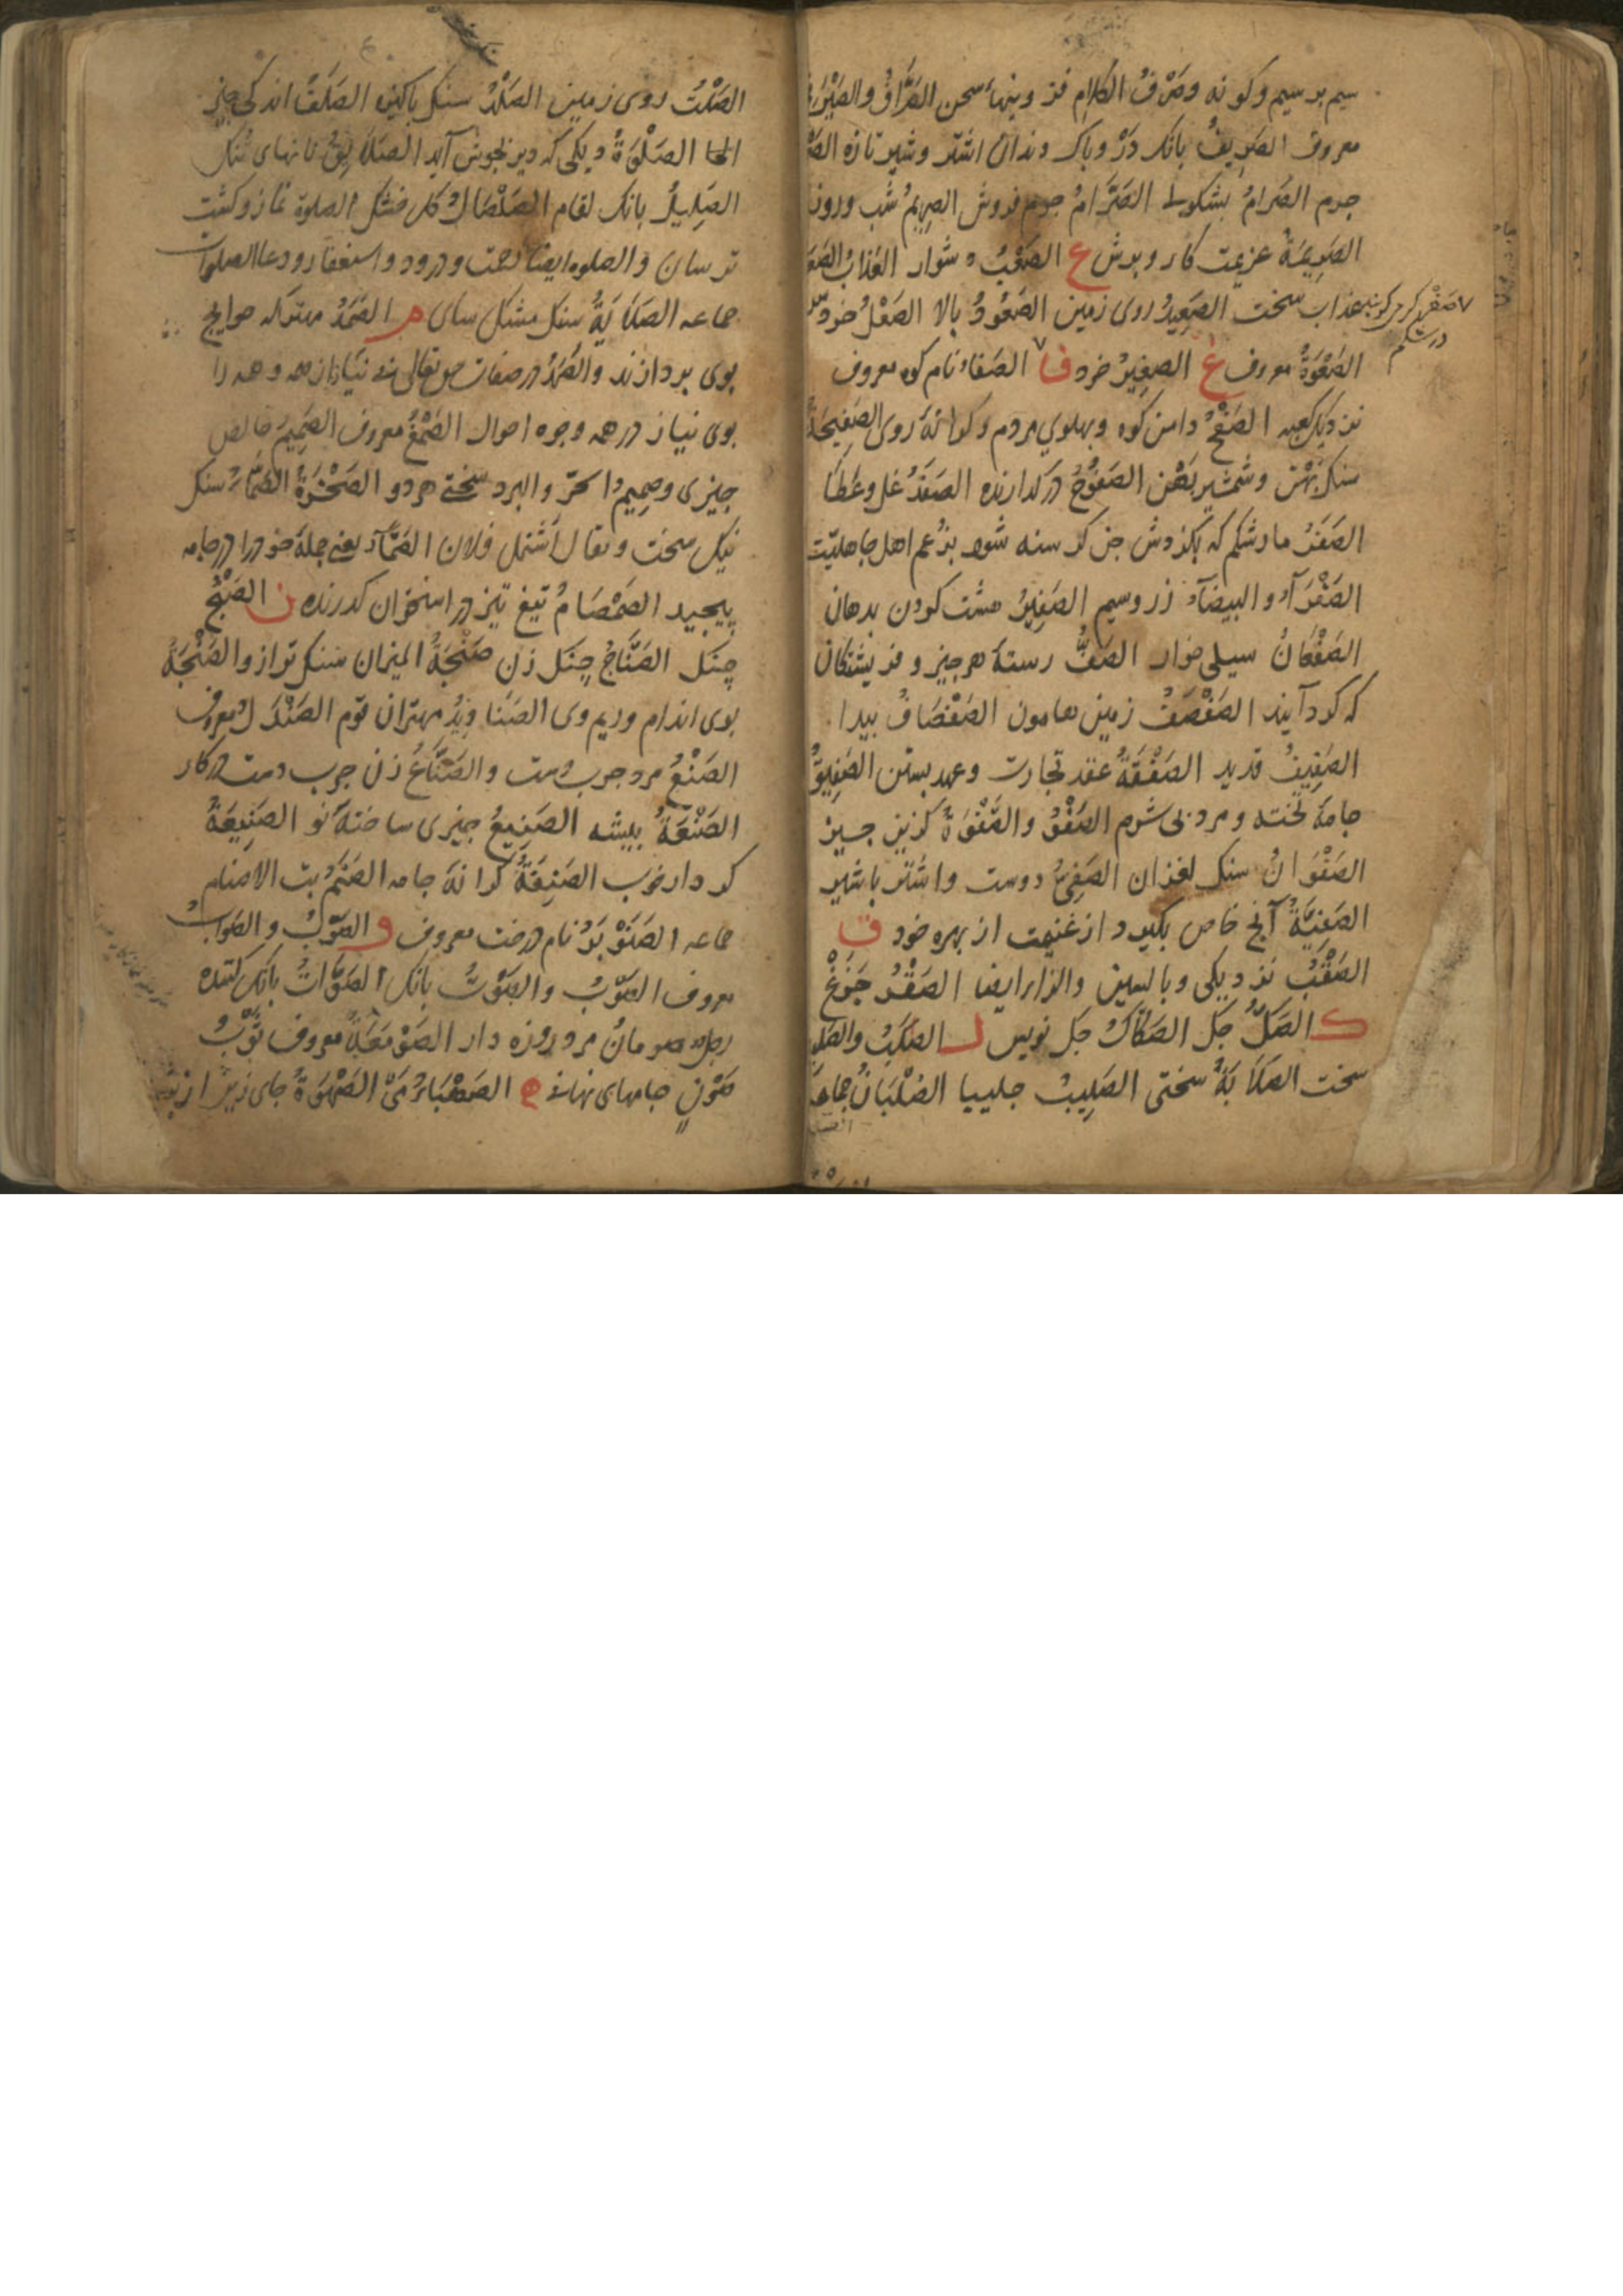 سیم بر سیم وکونه وصَرْفُ الکلام فزونیهاء سخن الصَّرَّافُ والصَّیْرَفِ
معروف الصَرِیفُ بانک دَرْ وبانک دندان اشتر وشیر تازه
جرم الصَرَامُ الصَّرَّامُ جرم فروش الصَرِیمُ شب وروز
الصَرِیمَةُ عزیمت کار وبرش ع الصَعْبُ دشوار العَذابُ الصَعَ
عذاب سخت الصَعِیدُ روی زمین الصَعُودُ بالا الصَعْلُ خرد سر
الصَعْوَةُ معروف غ الصَغِیرُ خرد ف الصَفَا نام کوه معروف
صَفَرْ کرمی
در شکم
نزدیک کعبه الصَفْحُ دامن کوه وپهلوی مردم وکرانهٔ روی الصَفِیحَةُ
سنک پهن وشمشیر پهن الصَفُوحُ درکذارنده الصَفَدُ غل وعَطا
الصَفَرُ مار شکم که بکزدش جن کرسنه شود بزعم اهل جاهلیّت
الصَفْرَآءُ والبیضَآءُ زر وسیم الصَفِیرُ هشت کردن بدهان
الصَفْعَانُ سیلی خوار الصَفُّ رستهٔ هر چیز وفریشتکان
که کرد آیند الصَفْصَفُ زمین هامون الصَفْصَافُ بید
الصَفِیفُ قدید الصَفْقَةُ عقد تجارت وعهد بستن الصَفِیقُ
جامهٔ لخته ومرد بی شرم الصَفْوُ والصَفْوَةُ کزین چیز
الصَفْوَانُ سنک لغزان الصَفِیُّ دوست واشتر باشیر
الصَفِیَّةُ آنچ خاص بکیرد از غنیمت از بهره خود ق
الصَقْبُ نزدیکی وبالسین والزا ایضا الصَقْرُ چَرْغْ
ک الصَکُّ چک الصَکَّاکُ چک نویس ل الصُلْبُ والصَلِ
سخت الصَلَابَةُ سختی الصَلِیبُ چلیپا الصُلْبَانُ جماعه
الصَلْتُ روی زمین الصَلْدُ سنک پاکیزه الصَلَفُ اندکی خیر
الصَلْوَةُ دیکی که دیر بجوش آید الصَلَائِقُ نانهای تنک
الصَلِیلُ بانک لغام الصَلْصَالُ کل خشک الصلوة نماز وکنشت
ترسان والصلوه ایضا رحمت ودرود واستغفار ودعا الصلوات
جماعه الصَلَایَةُ سنک مشک سای م الصَمَدُ مهتر که حوایج
بوی بردارند والصَمَدُ در صفات حق تعالی بی نیاز از همه وهمه را
بوی نیاز در همه وجوه احوال الصَمْغُ معروف الصَمِیمُ خالص
چیزی وصمیم الحَرّ والبرد سختی هر دو الصَخْرَةُ الصَمَّآءُ سنک
نیک سخت ویقال اشتمل فلان الصَمَّآءَ یعنی جملهٔ خود را در جامه
پیچید الصَمْصَامُ تیغ تیز در استخوان کدرنده ن الصَنْجُ
چنک الصَنَّاجُ چنک زن صَنْجَةُ المیزان سنک ترازو الصَنْجَةُ
بوی اندام وریم وی الصَنَادِیدُ مهتران قوم الصَنْدَلُ معروف
الصَنَعُ مرد چرب دست والصَنَاعُ زن چرب دست در کار
الصَنْعَةُ پیشه الصَنِیعُ چیزی ساختهٔ نو الصَنِیعَةُ
کردار خوب الصَنِفَةُ کرانهٔ جامه الصَنَمُ بت الاصنام
جماعه الصَنَوْبَرُ نام درخت معروف و الصَوْبُ والصَوَابُ
معروف الصَوْبُ والصَوْتُ بانک الصَوَّاتُ بانک کننده
رجل صومانُ مرد روزه دار الصَوْمَعَةُ معروف ثَوْبُ
صَوْنٍ جامهای نهان ه الصَهْبَاءُ مَیْ الصَهْوَةُ جای زین از پشت